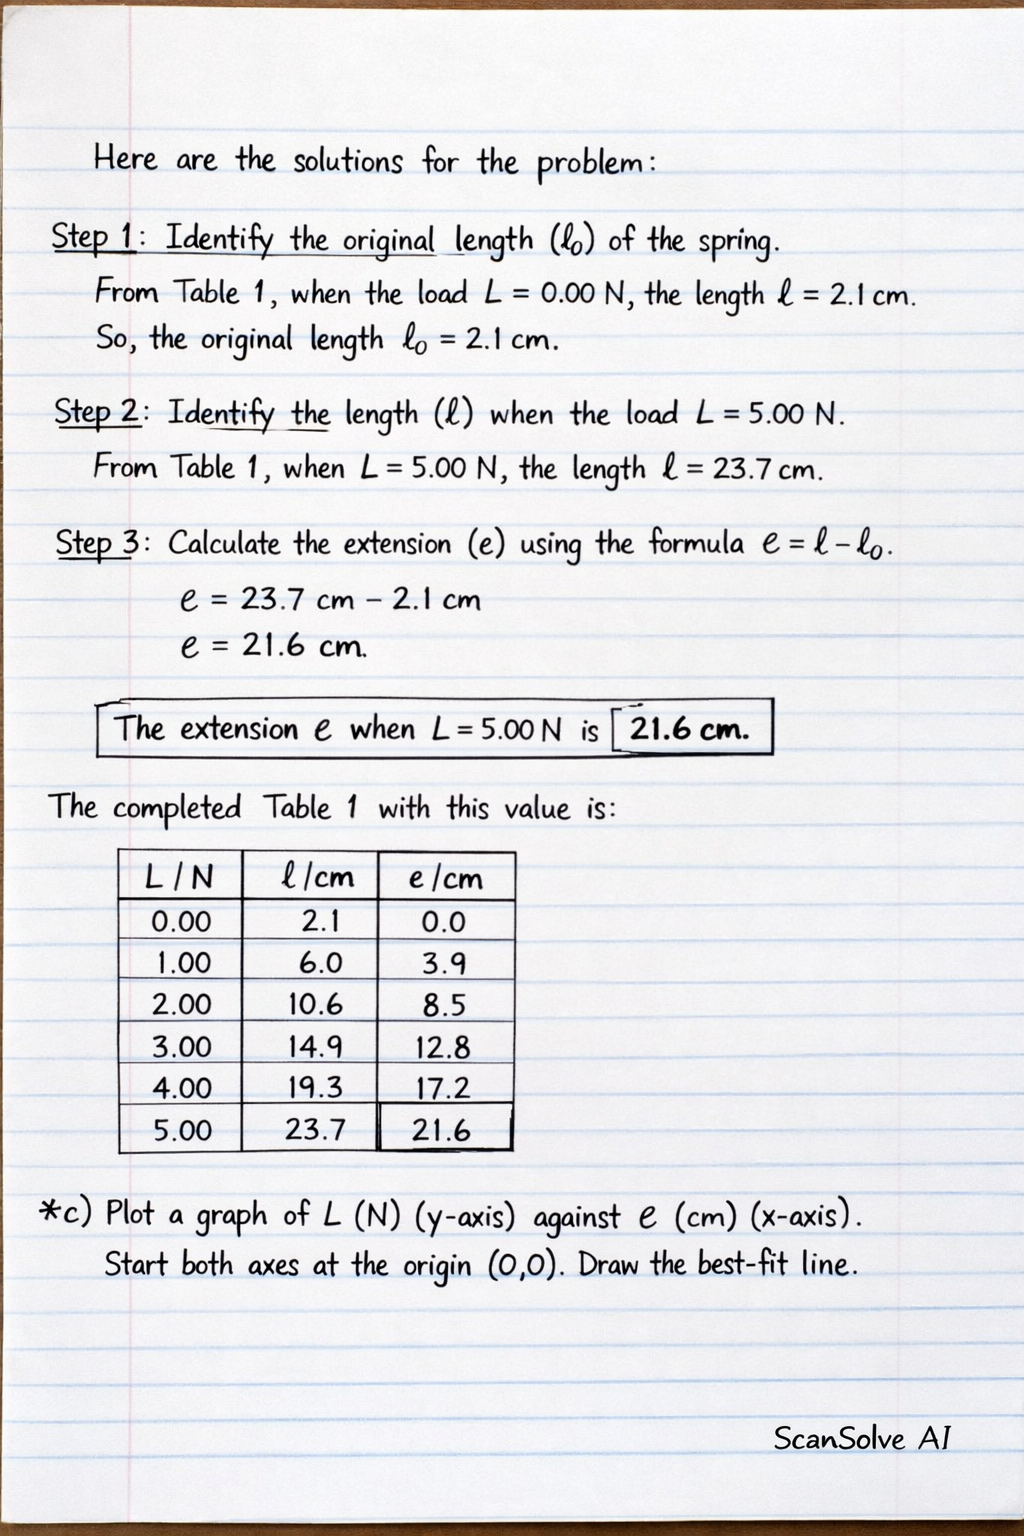 Here are the solutions for the problem:
Step 1: Identify the original length (ℓ₀) of the spring.
From Table 1, when the load L = 0.00 N, the length ℓ = 2.1 cm.
So, the original length ℓ₀ = 2.1 cm.
Step 2: Identify the length (ℓ) when the load L = 5.00 N.
From Table 1, when L = 5.00 N, the length ℓ = 23.7 cm.
Step 3: Calculate the extension (e) using the formula e = ℓ – ℓ₀.
e = 23.7 cm – 2.1 cm
e = 21.6 cm.
The extension e when L = 5.00 N is 21.6 cm.
The completed Table 1 with this value is:
L / N ℓ /cm e /cm
0.00 2.1 0.0
1.00 6.0 3.9
2.00 10.6 8.5
3.00 14.9 12.8
4.00 19.3 17.2
5.00 23.7 21.6
*c) Plot a graph of L (N) (y-axis) against e (cm) (x-axis).
Start both axes at the origin (0,0). Draw the best-fit line.
ScanSolve AI